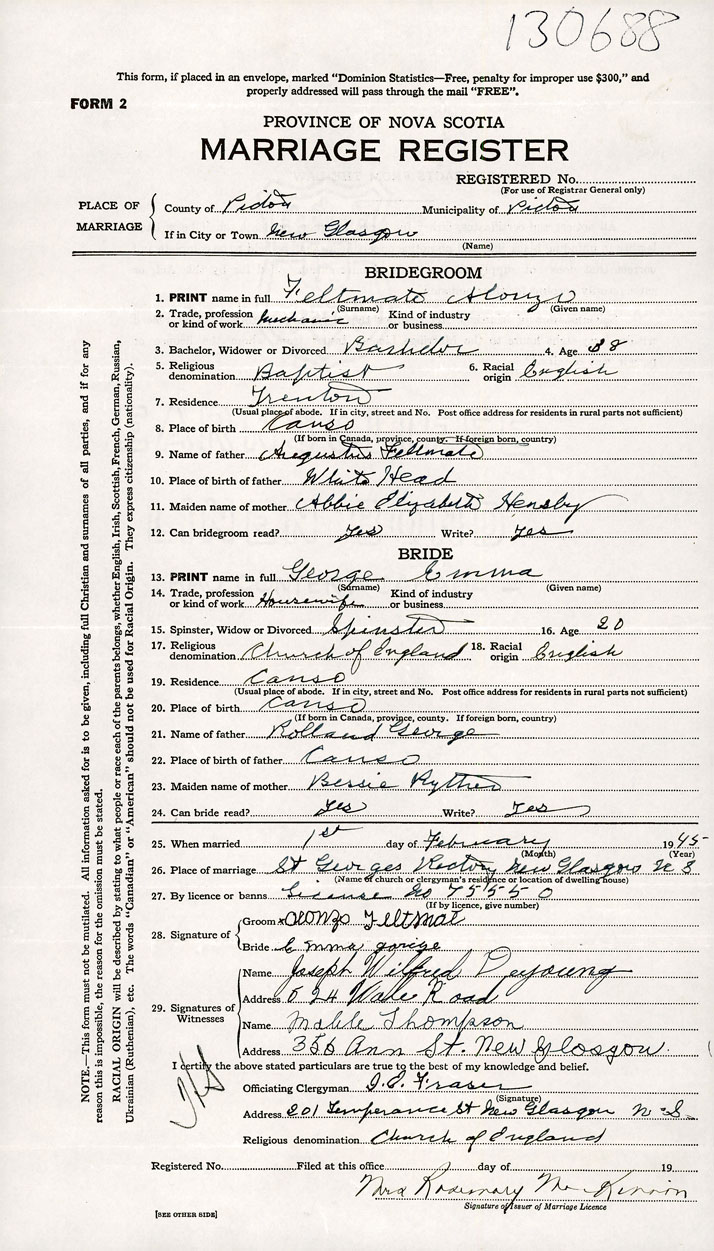 130688
This form, if placed in an envelope, marked "Dominion Statistics—Free, penalty for improper use $300," and
properly addressed will pass through the mail "FREE".
FORM 2
PROVINCE OF NOVA SCOTIA
MARRIAGE REGISTER
REGISTERED No.
(For use of Registrar General only)
PLACE OF MARRIAGE
County of Pictou Municipality of Pictou
If in City or Town New Glasgow
(Name)
BRIDEGROOM
1. PRINT name in full Feltmate Alonzo
(Surname) (Given name)
2. Trade, profession or kind of work Mechanic Kind of industry or business
3. Bachelor, Widower or Divorced Bachelor 4. Age 38
5. Religious denomination Baptist 6. Racial origin English
7. Residence Trenton
(Usual place of abode. If in city, street and No. Post office address for residents in rural parts not sufficient)
8. Place of birth Canso
(If born in Canada, province, county. If foreign born, country)
9. Name of father Augustus Feltmate
10. Place of birth of father White Head
11. Maiden name of mother Abbie Elizabeth Hensby
12. Can bridegroom read? Yes Write? Yes
BRIDE
13. PRINT name in full George Emma
(Surname) (Given name)
14. Trade, profession or kind of work Housewife Kind of industry or business
15. Spinster, Widow or Divorced Spinster 16. Age 20
17. Religious denomination Church of England 18. Racial origin English
19. Residence Canso
(Usual place of abode. If in city, street and No. Post office address for residents in rural parts not sufficient)
20. Place of birth Canso
(If born in Canada, province, county. If foreign born, country)
21. Name of father Rolland George
22. Place of birth of father Canso
23. Maiden name of mother Bessie
24. Can bride read? Yes Write? Yes
25. When married 1st day of February 1945
(Month) (Year)
26. Place of marriage St Georges Rectory New Glasgow N S
(Name of church or clergyman's residence or location of dwelling house)
27. By licence or banns License No 75550
(If by licence, give number)
28. Signature of
Groom x Alonzo Feltmat
Bride Emma gorige
29. Signatures of Witnesses
Name Joseph Wilfred Deyoung
Address 524 Road
Name Mable Thompson
Address 356 Ann St. New Glosgow.
I certify the above stated particulars are true to the best of my knowledge and belief.
Officiating Clergyman Fraser
(Signature)
Address 201 Temperance St New Glasgow N.S.
Religious denomination Church of England
Registered No. Filed at this office day of 19
Mrs Rosemary Mac Kinnon
Signature of Issuer of Marriage Licence
[SEE OTHER SIDE]
NOTE.—This form must not be mutilated. All information asked for is to be given, including full Christian and surnames of all parties, and if for any
reason this is impossible, the reason for the omission must be stated.
RACIAL ORIGIN will be described by stating to what people or race each of the parents belongs, whether English, Irish, Scottish, French, German, Russian,
Ukrainian (Ruthenian), etc. The words "Canadian" or "American" should not be used for Racial Origin. They express citizenship (nationality).